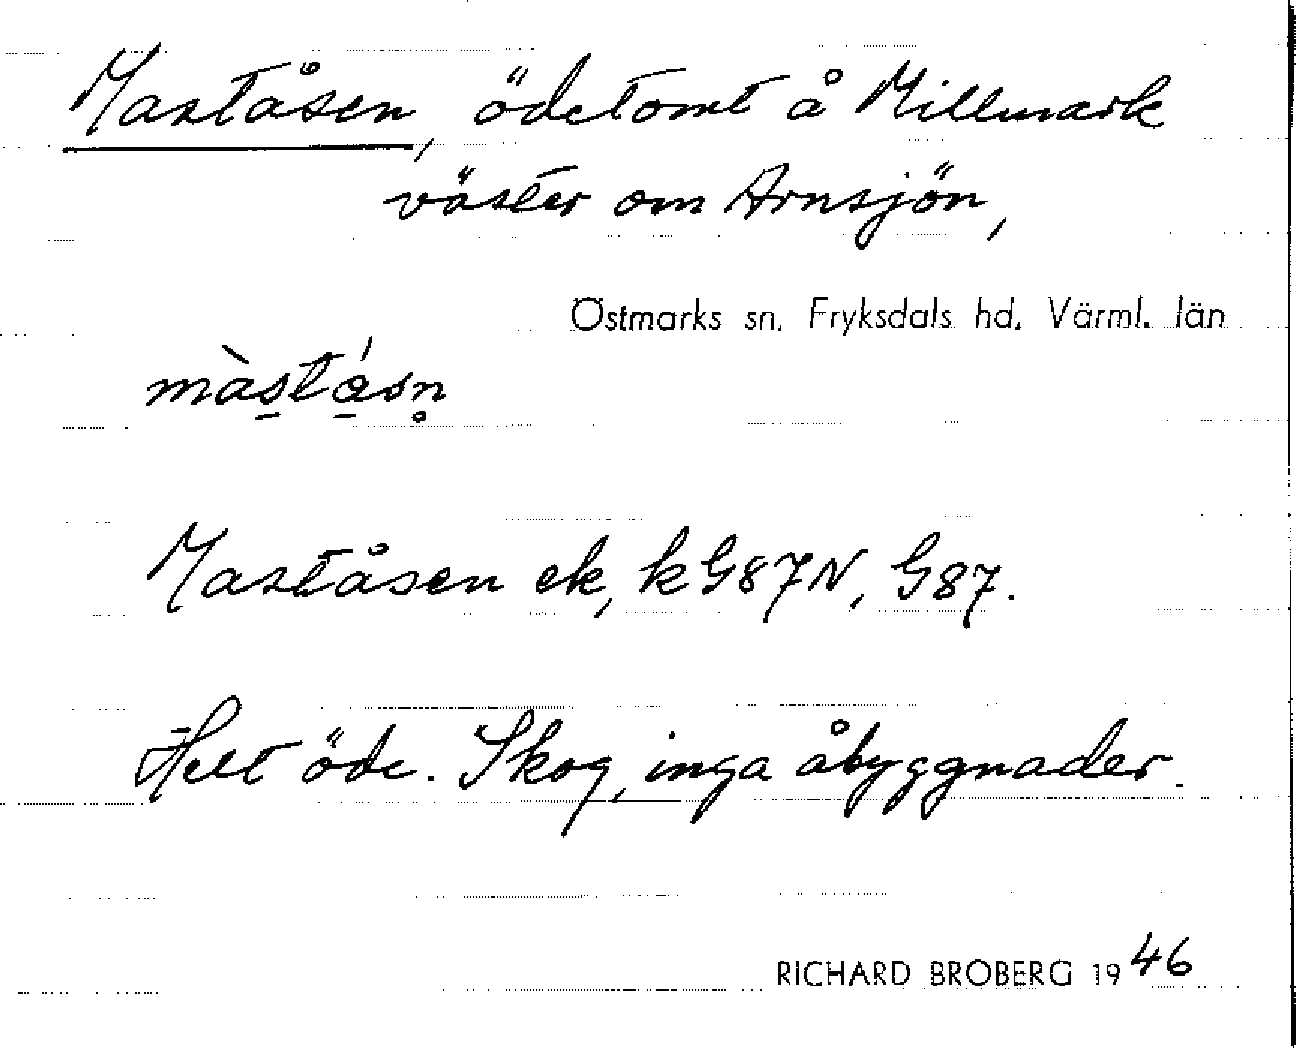 Maståsen, ödetomt å Millmark
väster om Arnsjön,
Östmarks sn. Fryksdals hd. Värml. län
màs̠tá̠sn̥
Maståsen ek, k G87N, G87.
Helt öde. Skog, inga åbyggnader.
RICHARD BROBERG 1946